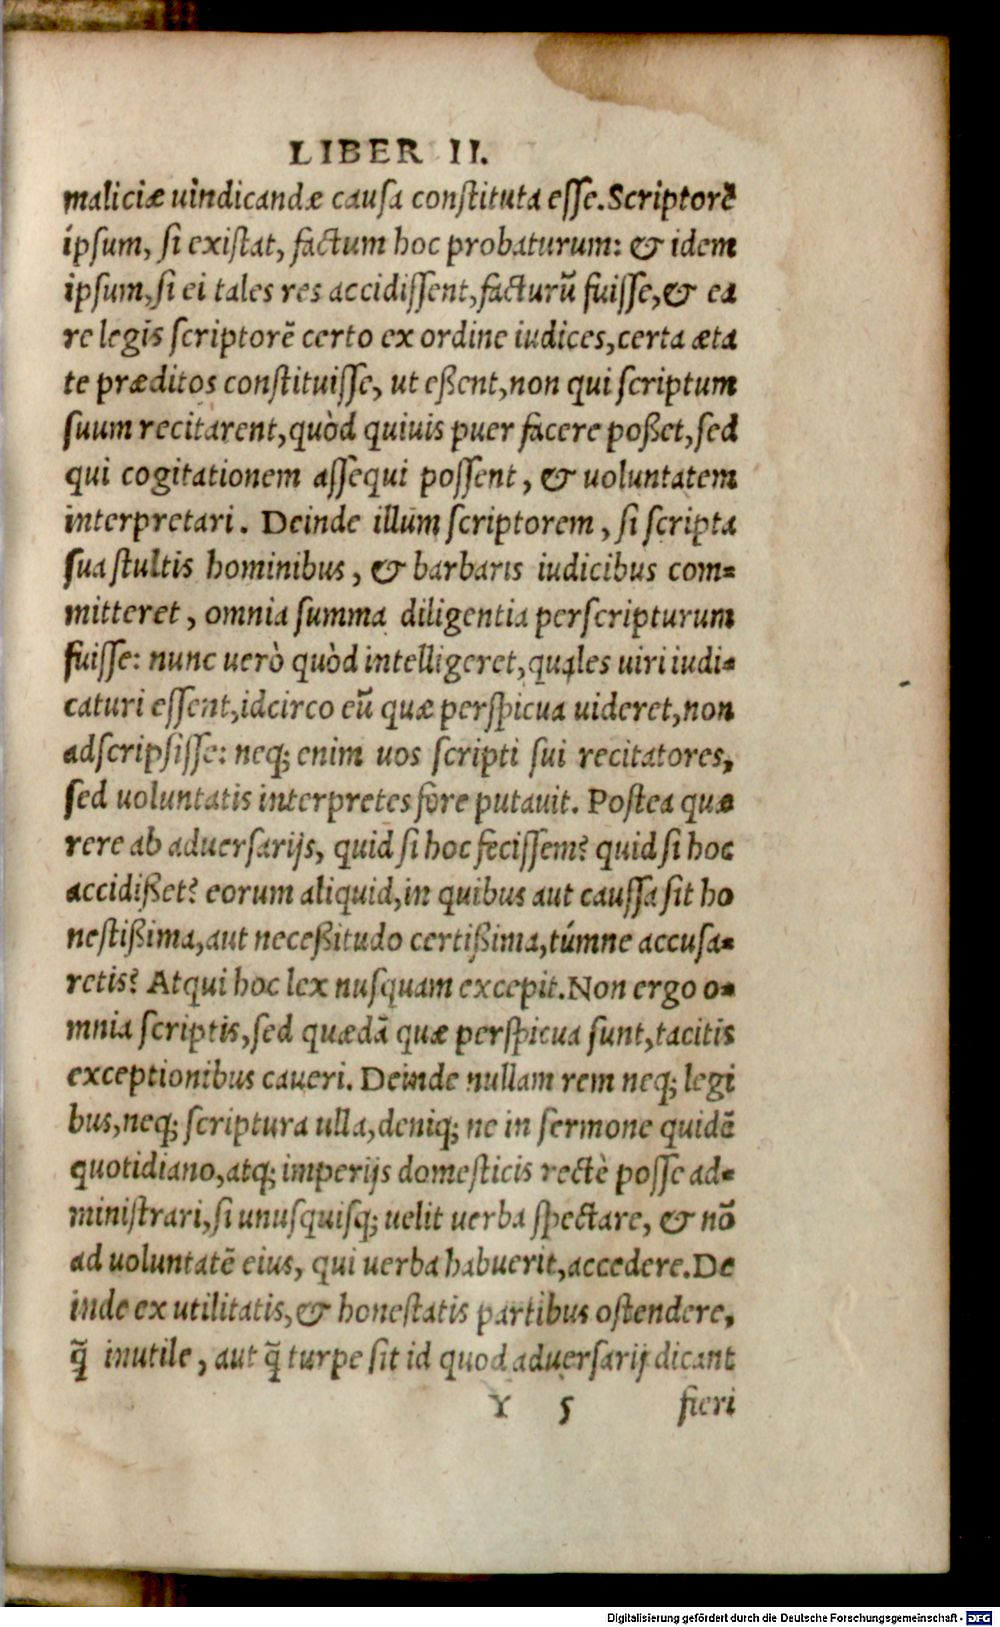 LIBER II.
maliciæ uindicandæ causa constituta esse. Scriptorē
ipsum, si existat, factum hoc probaturum: & idem
ipsum, si ei tales res accidissent, facturū fuisse, & ea
re legis scriptorē certo ex ordine iudices, certa æta
te præditos constituisse, ut eßent, non qui scriptum
suum recitarent, quòd quiuis puer facere poßet, sed
qui cogitationem assequi possent, & uoluntatem
interpretari. Deinde illum scriptorem, si scripta
sua stultis hominibus, & barbaris iudicibus com-
mitteret, omnia summa diligentia perscripturum
fuisse: nunc uerò quòd intelligeret, quales uiri iudi-
caturi essent, idcirco eū quæ perspicua uideret, non
adscripsisse: neq; enim uos scripti sui recitatores,
sed uoluntatis interpretes fore putauit. Postea quæ
rere ab aduersarijs, quid si hoc fecissem? quid si hoc
accidißet? eorum aliquid, in quibus aut caussa sit ho
nestißima, aut neceßitudo certißima, túmne accusa-
retis? Atqui hoc lex nusquam excepit. Non ergo o-
mnia scriptis, sed quædā quæ perspicua sunt, tacitis
exceptionibus caueri. Deinde nullam rem neq; legi
bus, neq; scriptura ulla, deniq; ne in sermone quidē
quotidiano, atq; imperijs domesticis rectè posse ad-
ministrari, si unusquisq; uelit uerba spectare, & nō
ad uoluntatē eius, qui uerba habuerit, accedere. De
inde ex utilitatis, & honestatis partibus ostendere,
q̄ inutile, aut q̄ turpe sit id quod aduersarij dicant
Y 5 fieri
Digitalisierung gefördert durch die Deutsche Forschungsgemeinschaft - DFG